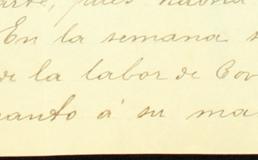 pues habría
En la semana
de la labor de Cov
uanto á su ma